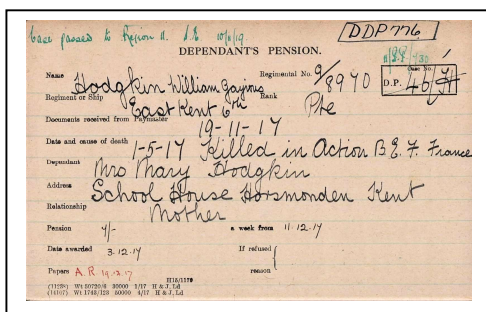 Case passed to Region II. S.E. 10/11/19. DDP776
DEPENDANT'S PENSION.
Name Hodgkin William Regimental No. G/8940 Case No. D.P.
Regiment or Ship East Kent 6th Rank Pte
Documents received from Paymaster 19-11-17
Date and cause of death 1-5-17 Killed in Action B.E.F. France
Dependant Mrs Mary Hodgkin
Address School House Horsmonden Kent
Relationship Mother
Pension 4/- a week from 11.12.17
Date awarded 3.12.17 If refused
Papers A.R. 19.12.17 reason
H15/1179
Wt 50720/6 30000 1/17 H & J, Ld
(14107) Wt 1743/123 50000 4/17 H & J, Ld